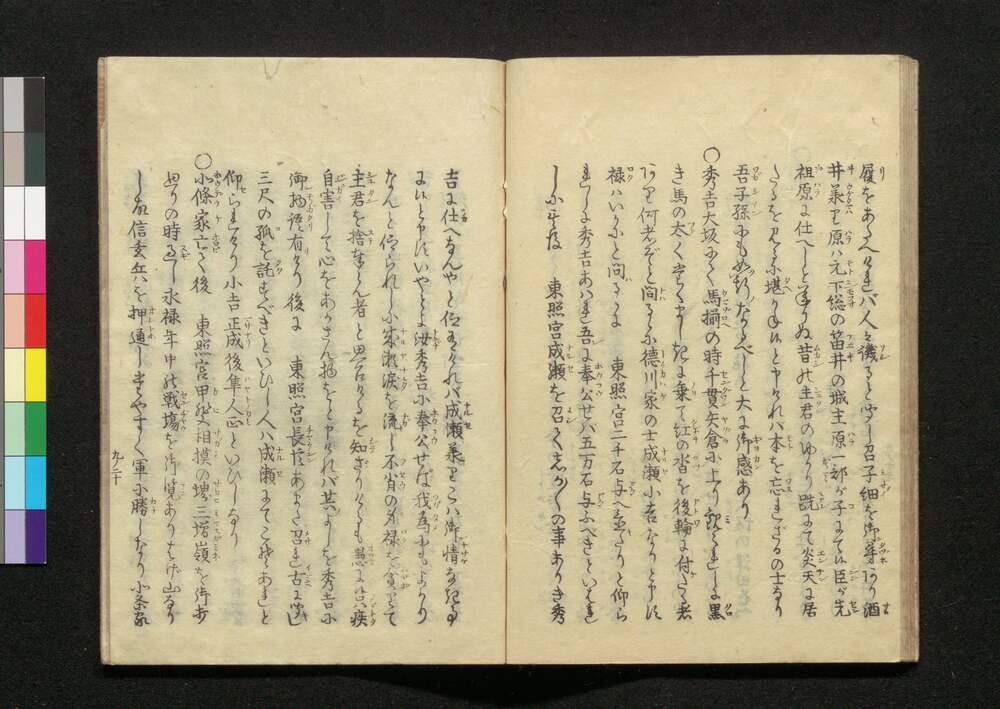 履をあたへけれバ人々譏ると聞し召子細を御尋あり酒
井某申原ハ元下総の笛井の城主原一郎が子にて候臣が先
祖原に仕へしと承りぬ昔の主君のゆかり跣にて炎天に居
たるを見るに堪かね候と申けれハ本を忘れざるの士なり
吾子孫にも如斯ながるべしと大に御感あり
〇秀吉大坂にて馬揃の時千貫矢倉に上り観られしに黒
き馬の太く
に乗て紅の沓を後輪に付たる者
あり何者ぞと問るるに徳川家の士成瀬小吉なりと申す
禄ハいかにと問るるに 東照宮二千石与へ置たりと仰ら
れしに秀吉あはれ吾に奉公せバ五万石与ふべきといはれ
し
東照宮成瀬を召てしかしかの事あり秀
吉に仕へなんやと仰られけれバ成瀬某申こハ御情なき
に候と申すいやとよ汝秀吉に奉公せば我為にもよかり
なんと仰られし小吉涙を流し不肖の身禄を貪りて
主君を捨奉らん者と思召るるを知ざりけるも愚に候ハ疾
自害して心をあかさん物をと申けれバ其よしを秀吉に
御物語有けり後に 東照宮長臣あまた召れ古に聞し
三尺の孤を託すべきといひし人ハ成瀬にてこそあれと
仰られけり小吉正成後隼人正といひしなり
〇北條家亡て後 東照宮甲州相模の堺三増嶺を御歩
の時
永禄年中の戦場を御覧ありはげ山なり
信玄兵ハを押通し
軍に勝しなり小条家
九ノ二十